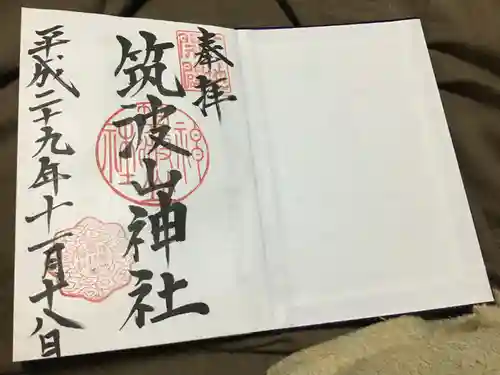 奉拝
筑波山神社
平成二十九年十一月十八日